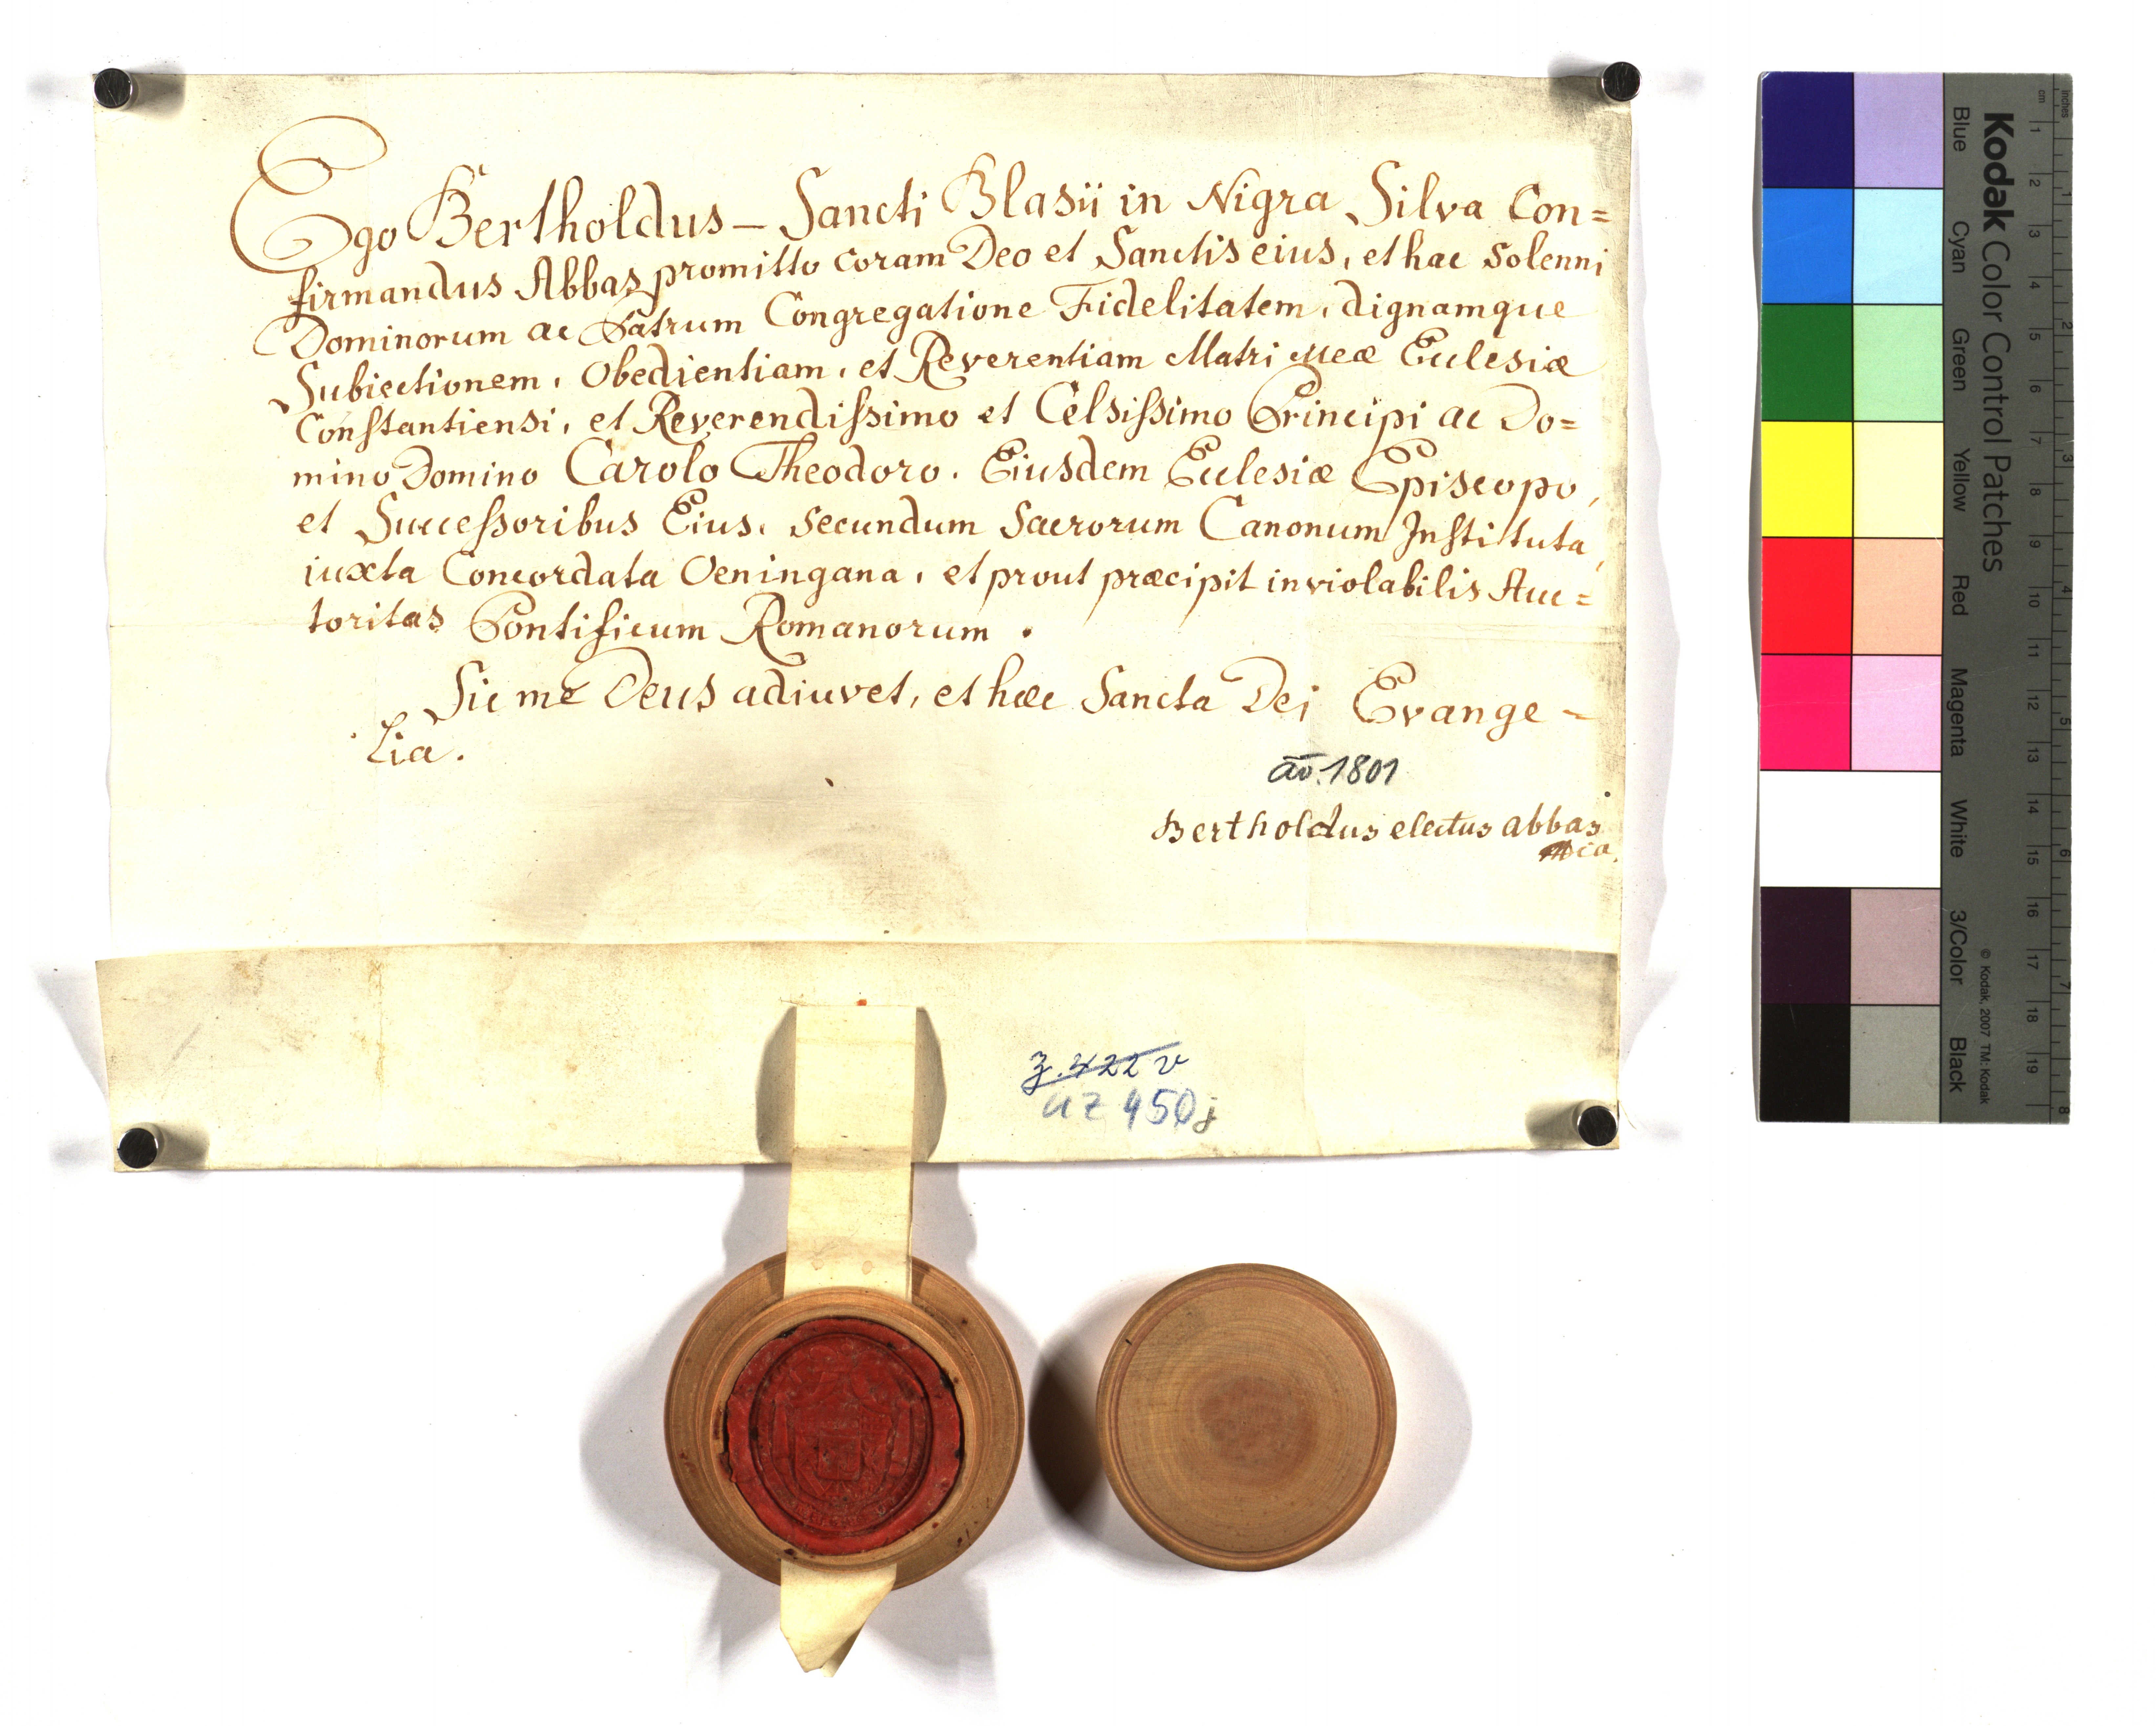 Ego Bertholdus – Sancti Blasii in Nigra Silva Con=
firmandus Abbas promitto coram Deo et Sanctis eius, et hac solenni
Dominorum ac Patrum Congregatione Fidelitatem, dignamque
Subiectionem, Obedientiam, et Reverentiam Matri meæ Ecclesiæ
Constantiensi, et Reverendissimo et Celsissimo Principi ac Do=
mino Domino Carolo Theodoro. Eiusdem Ecclesiæ Episcopo,
et Successoribus Eius, secundum Sacrorum Canonum Instituta,
iuxta Concordata Oeningana, et prout præcipit inviolabilis Auc=
toritas Pontificum Romanorum.
Sic me Deus adiuvet, et hæc Sancta Dei Evange-
lia.
ao. 1801
Bertholdus electus abbas
z. 422 v
UZ 450j
Kodak Color Control Patches
Blue Cyan Green Yellow Red Magenta White 3/Color Black
© Kodak, 2007 TM: Kodak
inches 1 2 3 4 5 6 7 8
cm 1 2 3 4 5 6 7 8 9 10 11 12 13 14 15 16 17 18 19